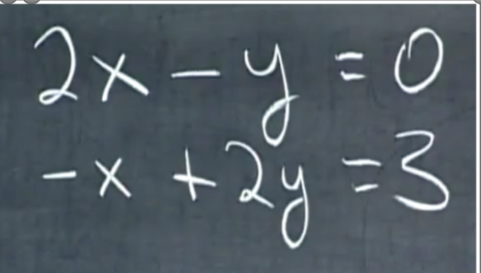 2x - y = 0
-x + 2y = 3